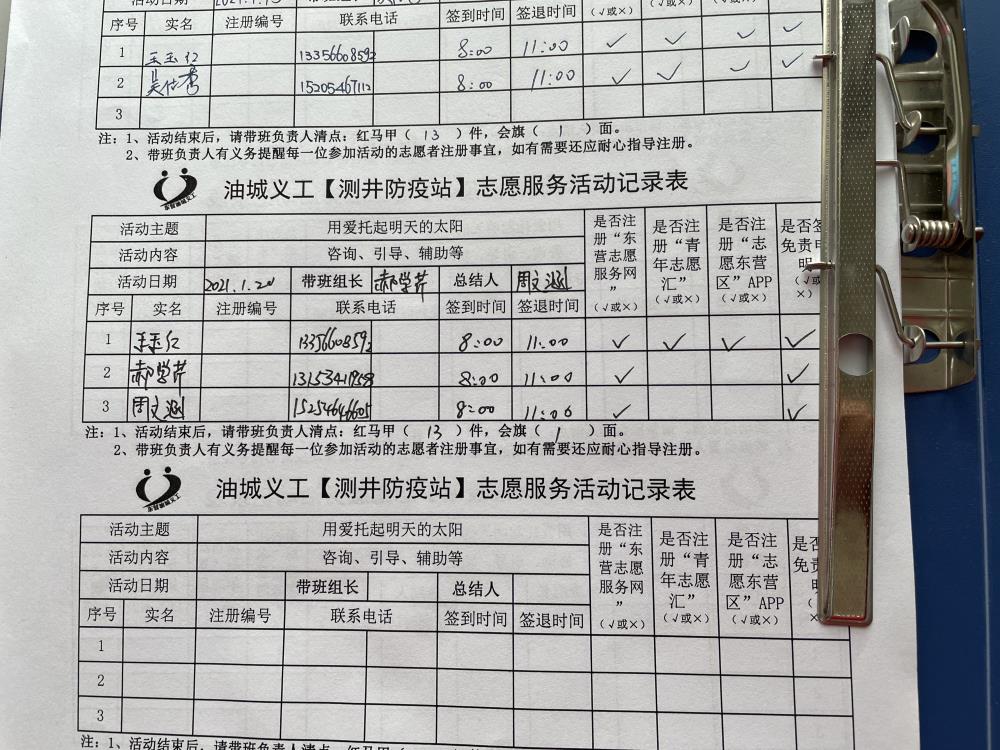 活动日期 2021.1.15 带班组长
序号 实名 注册编号 联系电话 签到时间 签退时间 (√或×) (√或×)
1 王玉仁 13356608592 8:00 11:00 ✓ ✓ ✓ ✓
2 15205467112 8:00 11:00 ✓ ✓ ✓ ✓
3
注：1、活动结束后，请带班负责人清点：红马甲（ 13 ）件，会旗（ 1 ）面。
2、带班负责人有义务提醒每一位参加活动的志愿者注册事宜，如有需要还应耐心指导注册。
东营油城义工
油城义工【测井防疫站】志愿服务活动记录表
活动主题 用爱托起明天的太阳 是否注册“东营志愿服务网”(√或×) 是否注册“青年志愿汇”(√或×) 是否注册“志愿东营区”APP(√或×) 是否签免责申明(√或×)
活动内容 咨询、引导、辅助等
活动日期 2021.1.20 带班组长 郝学芹 总结人 周文
序号 实名 注册编号 联系电话 签到时间 签退时间
1 王玉仁 13356608592 8:00 11:00 ✓ ✓ ✓ ✓
2 郝学芹 8:00 11:00 ✓ ✓
3 周文 15254646605 8:00 11:00 ✓ ✓
注：1、活动结束后，请带班负责人清点：红马甲（ 13 ）件，会旗（ 1 ）面。
2、带班负责人有义务提醒每一位参加活动的志愿者注册事宜，如有需要还应耐心指导注册。
东营油城义工
油城义工【测井防疫站】志愿服务活动记录表
活动主题 用爱托起明天的太阳 是否注册“东营志愿服务网”(√或×) 是否注册“青年志愿汇”(√或×) 是否注册“志愿东营区”APP(√或×) 是否 免责 明
活动内容 咨询、引导、辅助等
活动日期 带班组长 总结人
序号 实名 注册编号 联系电话 签到时间 签退时间
1
2
3
注：1、活动结束后，请带班负责人清点：红马甲（